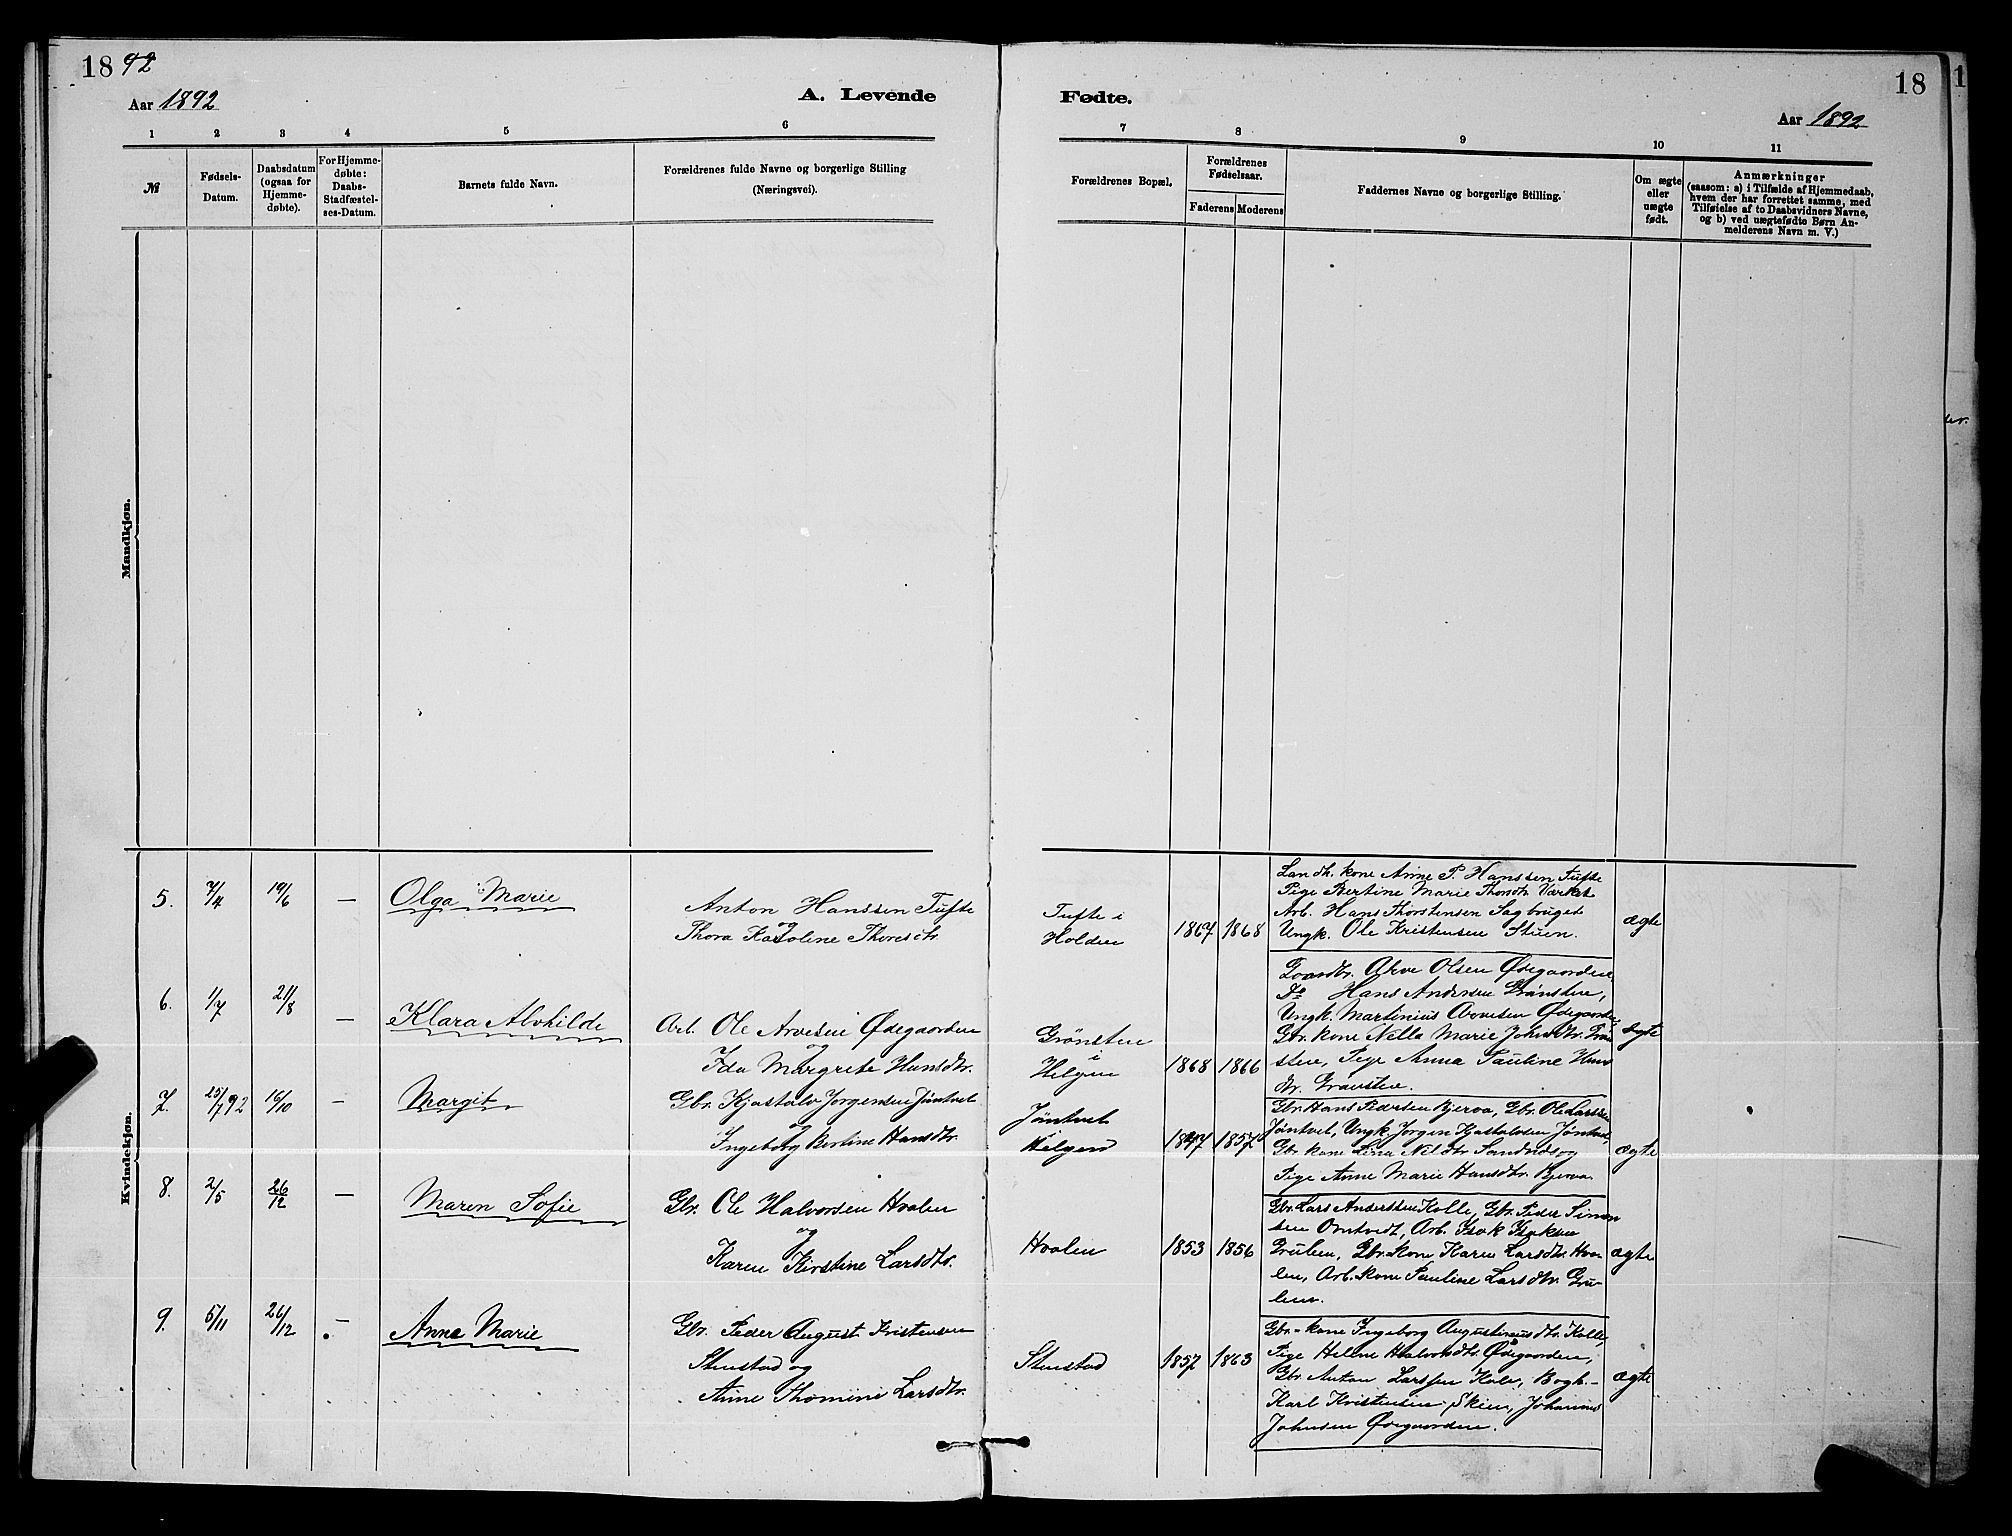 18 92
18
Aar 1892
A. Levende
Fødte.
Aar 1892
1 2 3 4 5 6
7 8 9 10 11
№
Fødsels-
Datum.
Daabsdatum
(ogsaa for
Hjemme-
døbte).
For Hjemme-
døbte:
Daabs-
Stadfæstel-
ses-Datum.
Barnets fulde Navn.
Forældrenes fulde Navne og borgerlige Stilling
(Næringsvei).
Forældrenes Bopæl.
Forældrenes
Fødselsaar.
Faderens Moderens
Faddernes Navne og borgerlige Stilling.
Om ægte
eller
uægte
født.
Anmærkninger
(saasom: a) i Tilfælde af Hjemmedaab,
hvem der har forrettet samme, med
Tilføielse af to Daabsvidners Navne,
og b) ved uægtefødte Børn An-
melderens Navn m. V.)
Mandkjøn.
Kvindekjøn.
5. 7/4 19/6 — Olga Marie
Anton Hanssen Tufte
og
Thora Karoline Thoresdtr.
Tufte i
Holden
1867 1868
Landh. kone Anne P. Hanssen Tufte
Pige Bertine Marie Thorsdtr. Værket
Arb. Hans Thorstensen Sagbruget
Ungk. Ole Kristensen Stuen.
ægte
6. 1/7 21/8 — Klara Alvhilde
Arb. Ole Arvesen Ødegaarden
og
Ida Margrete Hansdtr.
Grønsten
i
Helgen
1868 1866
Gaardbr. Arve Olsen Ødegaarden,
Do Hans Andersen Grønsten,
Ungk. Martinius Arvesen Ødegaarden,
Gbr. kone Nella Marie Johnsdtr.
sten, Pige Anna Pauline Hans
dtr. Gravsten.
ægte
7. 25/7 92 16/10 — Margit
Gbr. Kjøstolv Jørgensen Jøntvet
og
Ingeborg Bertine Hansdtr.
Jøntvet
Helgen
1847 1857
Gbr. Hans Pedersen Bjerva, Gbr. Ole Larssen
Jøntvet, Ungk. Jørgen Kjøstolvsen Jøntvet,
Gbr. kone Lina Nilsdtr. og
Pige Anne Marie Hansdtr. Bjerva
ægte
8. 2/5 26/12 — Maren Sofie
Gbr. Ole Halvorsen Hvalen
og
Karen Kirstine Larsdtr.
Hvalen
1853 1856
Gbr. Lars Andersen Kolle, Gbr. Peder Simon
sen Omtvedt, Arb. Isak Isaksen
Gruben, Gbr. kone Karen Larsdtr. Hva-
len, Arb. kone Pauline Larsdtr. Gru-
ben.
ægte
9. 5/11 26/12 — Anne Marie
Gbr. Peder August Kristensen
Stenstad og
Anne Thomine Larsdtr.
Stenstad
1857 1863
Gbr.-kone Ingeborg Augustinusdtr. Kolle,
Pige Helene Halvorsdtr. Ødegaarden,
Gbr. Anton Larssen Kole, Bogh.
Karl Kristensen, Skien, Johannes
Johnsen Ødegaarden.
ægte